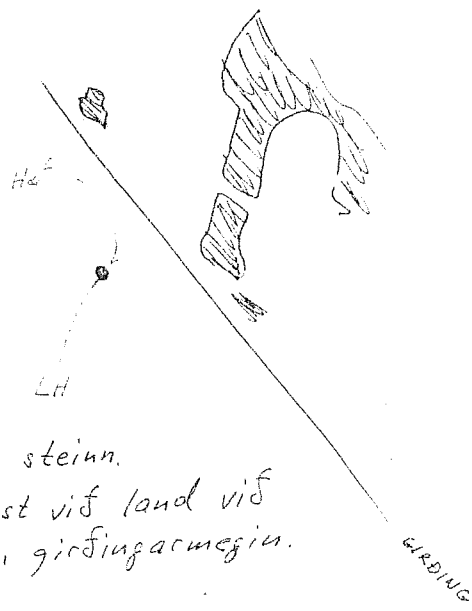 LH
steinn.
st við land við
girðingarmegin.
GIRÐING